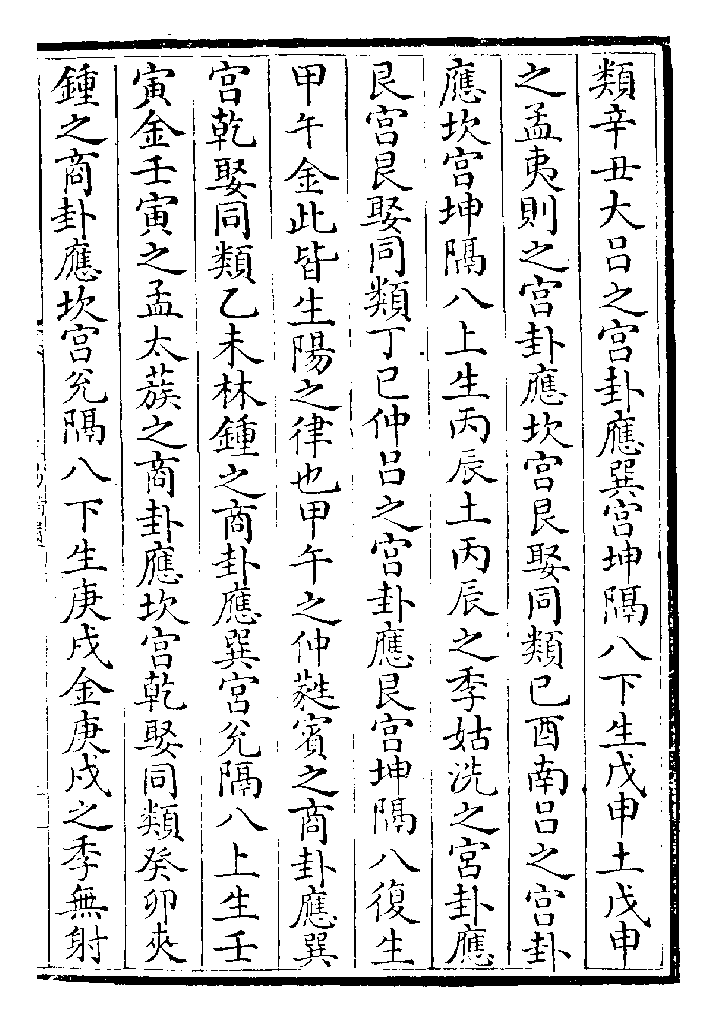 類辛丑大吕之宫卦應巽宫坤隔八下生戊申土戊申
之孟夷則之宫卦應坎宫艮娶同類己酉南吕之宫卦
應坎宫坤隔八上生丙辰土丙辰之季姑洗之宫卦應
艮宫艮娶同類丁巳仲吕之宫卦應艮宫坤隔八復生
甲午金此皆生陽之律也甲午之仲蕤賓之商卦應巽
宫乾娶同類乙未林鍾之商卦應巽宫兊隔八上生壬
寅金壬寅之孟太蔟之商卦應坎宫乾娶同類癸卯夾
鍾之商卦應坎宫兊隔八下生庚戌金庚戌之季無射